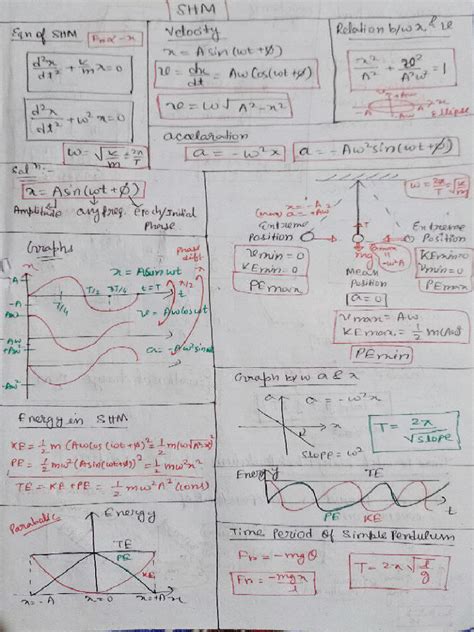 SHM
Eqn of SHM
Fn α -x
d²x/dt² + k/m x = 0
d²x/dt² + ω²x = 0
ω = √k/m = 2π/T
Velocity
x = A sin(ωt+φ)
v = dx/dt = Aω cos(ωt+φ)
v = ω√A²-x²
Relation b/w x & v
x²/A² + v²/A²ω² = 1
Ellipse
accelaration
a = -ω²x
a = -Aω² sin(ωt+φ)
Solⁿ:-
x = A sin(ωt+φ)
Amplitude
ang freq.
Epoch/Initial
Phase
Graphs
x = A sin ωt
Phase
diff.
T/4
T/2
3T/4
t=T
t
π/2
v = Aω cos ωt
A
-A
Aω
-Aω
ω = 2π/T = √k/m
Extreme
Position
Extreme
Position
T
mg
Vmin = 0
KEmin = 0
PEmax
Mean
Position
a = 0
KEmin = 0
Vmin = 0
PEmax
Vmax = Aω
PEmin
Graph b/w a & x
a
a = -ω²x
x
slope = ω²
T = 2π/√slope
Energy in SHM
KE = 1/2 m (Aω cos(ωt+φ))² = 1/2 m(ω√A²-x²)²
PE = 1/2 mω²(A sin(ωt+φ))² = 1/2 mω²x²
TE = KE + PE = 1/2 mω²A² (cons)
Energy
TE
PE
KE
t
Parabolic
Energy
TE
PE
KE
x=-A
x=0
x=+A
x
Time Period Of Simple Pendulum
Fn = -mgθ
Fn = -mgx/l
T = 2π√l/g